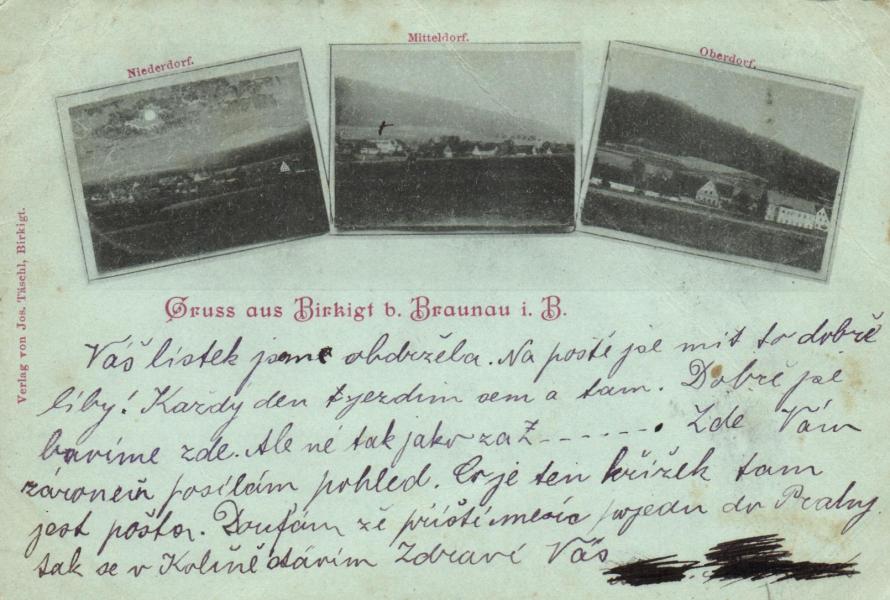 Niederdorf.
Mitteldorf.
Oberdorf.
Verlag von Jos. Täschl, Birkigt.
Gruss aus Birkigt b. Braunau i. B.
Váš lístek jsme obdržela. Na poště jse mít to dobře
líby! Každý den zjezdím sem a tam. Dobře jse
bavíme zde. Ale né tak jako za Ž-------. Zde Vám
zároneň posílám pohled. Co je ten křížek tam
jest pošta. Doufám zě příští mesíc pojedu do Prahy
tak se v Kolíně
Zdraví Váš